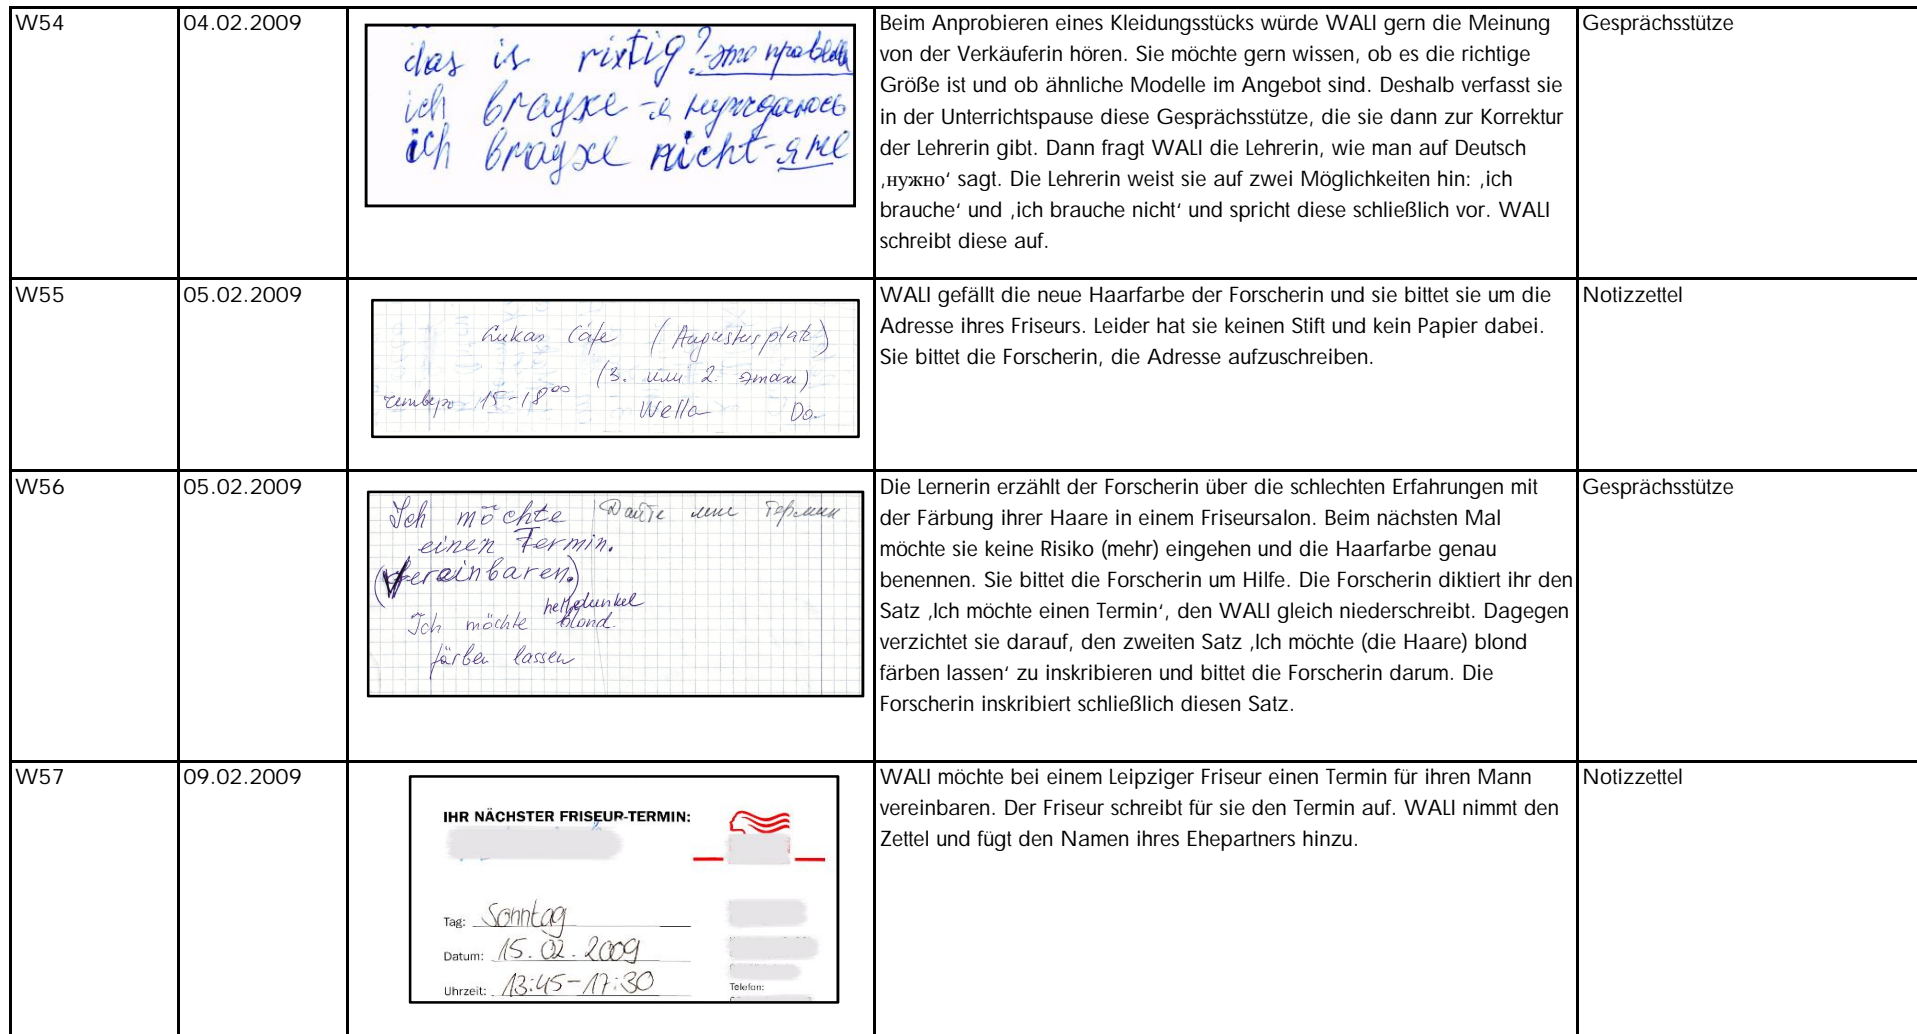 W54
04.02.2009
das is rixtig? это правильн
ich брауxе - я нуждаюсь
ich брауxе nicht - я не
Beim Anprobieren eines Kleidungsstücks würde WALI gern die Meinung
von der Verkäuferin hören. Sie möchte gern wissen, ob es die richtige
Größe ist und ob ähnliche Modelle im Angebot sind. Deshalb verfasst sie
in der Unterrichtspause diese Gesprächsstütze, die sie dann zur Korrektur
der Lehrerin gibt. Dann fragt WALI die Lehrerin, wie man auf Deutsch
‚нужно‘ sagt. Die Lehrerin weist sie auf zwei Möglichkeiten hin: ‚ich
brauche‘ und ‚ich brauche nicht‘ und spricht diese schließlich vor. WALI
schreibt diese auf.
Gesprächsstütze
W55
05.02.2009
Lukas Cafe (Augustusplatz)
(3. или 2. этаж)
15-18⁰⁰
Wella Do.
WALI gefällt die neue Haarfarbe der Forscherin und sie bittet sie um die
Adresse ihres Friseurs. Leider hat sie keinen Stift und kein Papier dabei.
Sie bittet die Forscherin, die Adresse aufzuschreiben.
Notizzettel
W56
05.02.2009
Ich möchte Дайте мне термин
einen Termin.
(Vereinbaren.)
hell dunkel
Ich möchte blond.
färben lassen
Die Lernerin erzählt der Forscherin über die schlechten Erfahrungen mit
der Färbung ihrer Haare in einem Friseursalon. Beim nächsten Mal
möchte sie keine Risiko (mehr) eingehen und die Haarfarbe genau
benennen. Sie bittet die Forscherin um Hilfe. Die Forscherin diktiert ihr den
Satz ‚Ich möchte einen Termin‘, den WALI gleich niederschreibt. Dagegen
verzichtet sie darauf, den zweiten Satz ‚Ich möchte (die Haare) blond
färben lassen‘ zu inskribieren und bittet die Forscherin darum. Die
Forscherin inskribiert schließlich diesen Satz.
Gesprächsstütze
W57
09.02.2009
IHR NÄCHSTER FRISEUR-TERMIN:
Tag: Sonntag
Datum: 15.02.2009
Uhrzeit: 13:45-17:30
Telefon:
WALI möchte bei einem Leipziger Friseur einen Termin für ihren Mann
vereinbaren. Der Friseur schreibt für sie den Termin auf. WALI nimmt den
Zettel und fügt den Namen ihres Ehepartners hinzu.
Notizzettel